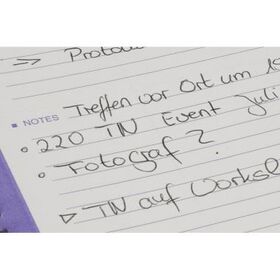 => Proto
NOTES Treffen vor Ort um
• 220 TN Event Juli
• Fotograf?
▷ TN auf